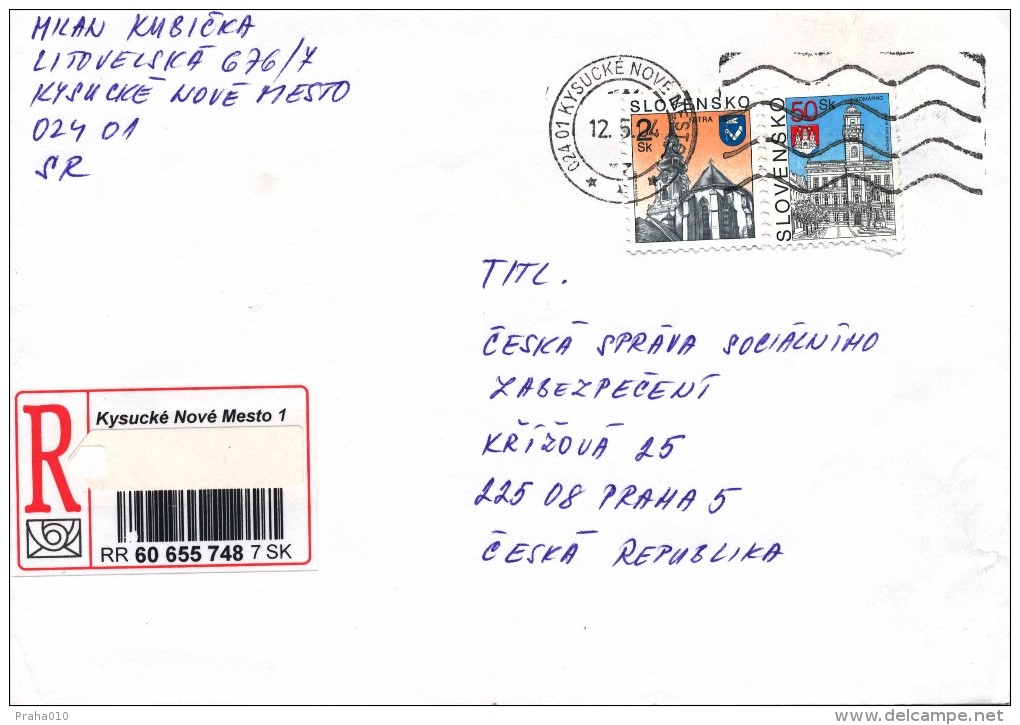 MILAN KUBIČKA
LITOVELSKÁ 676/7
KYSUCKÉ NOVÉ MESTO
024 01
SR
024 01 KYSUCKÉ NOVÉ MESTO
12. 5.
SLOVENSKO
NITRA
2
SK
SLOVENSKO
50 SK
KOMÁRNO
TITL.
ČESKÁ SPRÁVA SOCIÁLNÍHO
ZABEZPEČENÍ
KŘÍŽOVÁ 25
225 08 PRAHA 5
ČESKÁ REPUBLIKA
R
Kysucké Nové Mesto 1
RR 60 655 748 7 SK
Praha010
www.delcampe.net